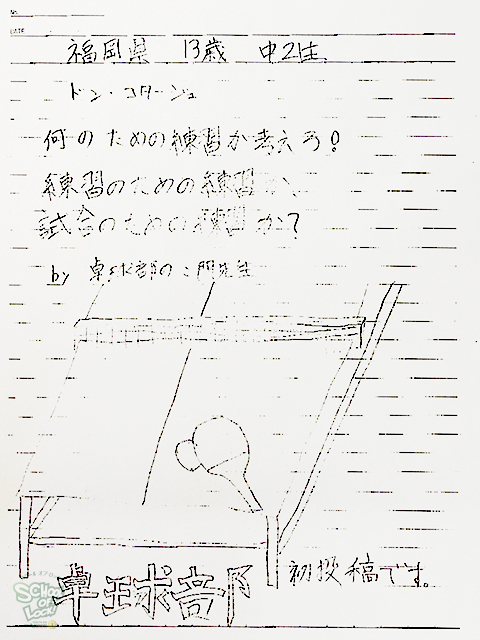 No.
DATE
福岡県 13歳 中2生
ドン・コタージュ
何のための練習か考えろ!
練習のための練習か、
試合のための練習か?
by 卓球部の 先生
卓球部
初投稿です。
SCHOOL OF LOCK!